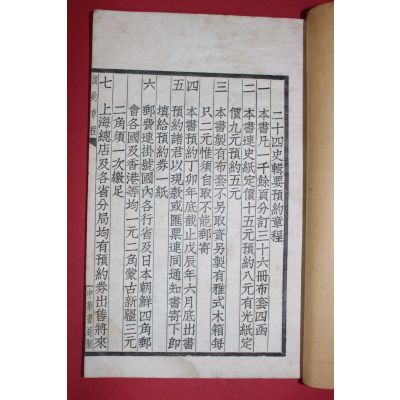 二十四史輯要預約章程
一　本書凡一千餘頁分訂三十六冊布套四函
二　本書連史紙定價十五元預約八元有光紙定
價九元預約五元
三　本書製有布套不另取資另製有雅式木箱每
只一元惟須自取不能郵寄
四　本書預約丁卯年底截止戊辰年六月底出書
五　預約諸君以現款或匯票連同通知書寄下即
填給預約券一紙
六　郵費連掛號國內各行省及日本朝鮮四角郵
會各國及香港等均一元二角蒙古新疆三元
二角須一次繳足
七　上海總店及各省分局均有預約券出售將來
預約章程
中華書局製